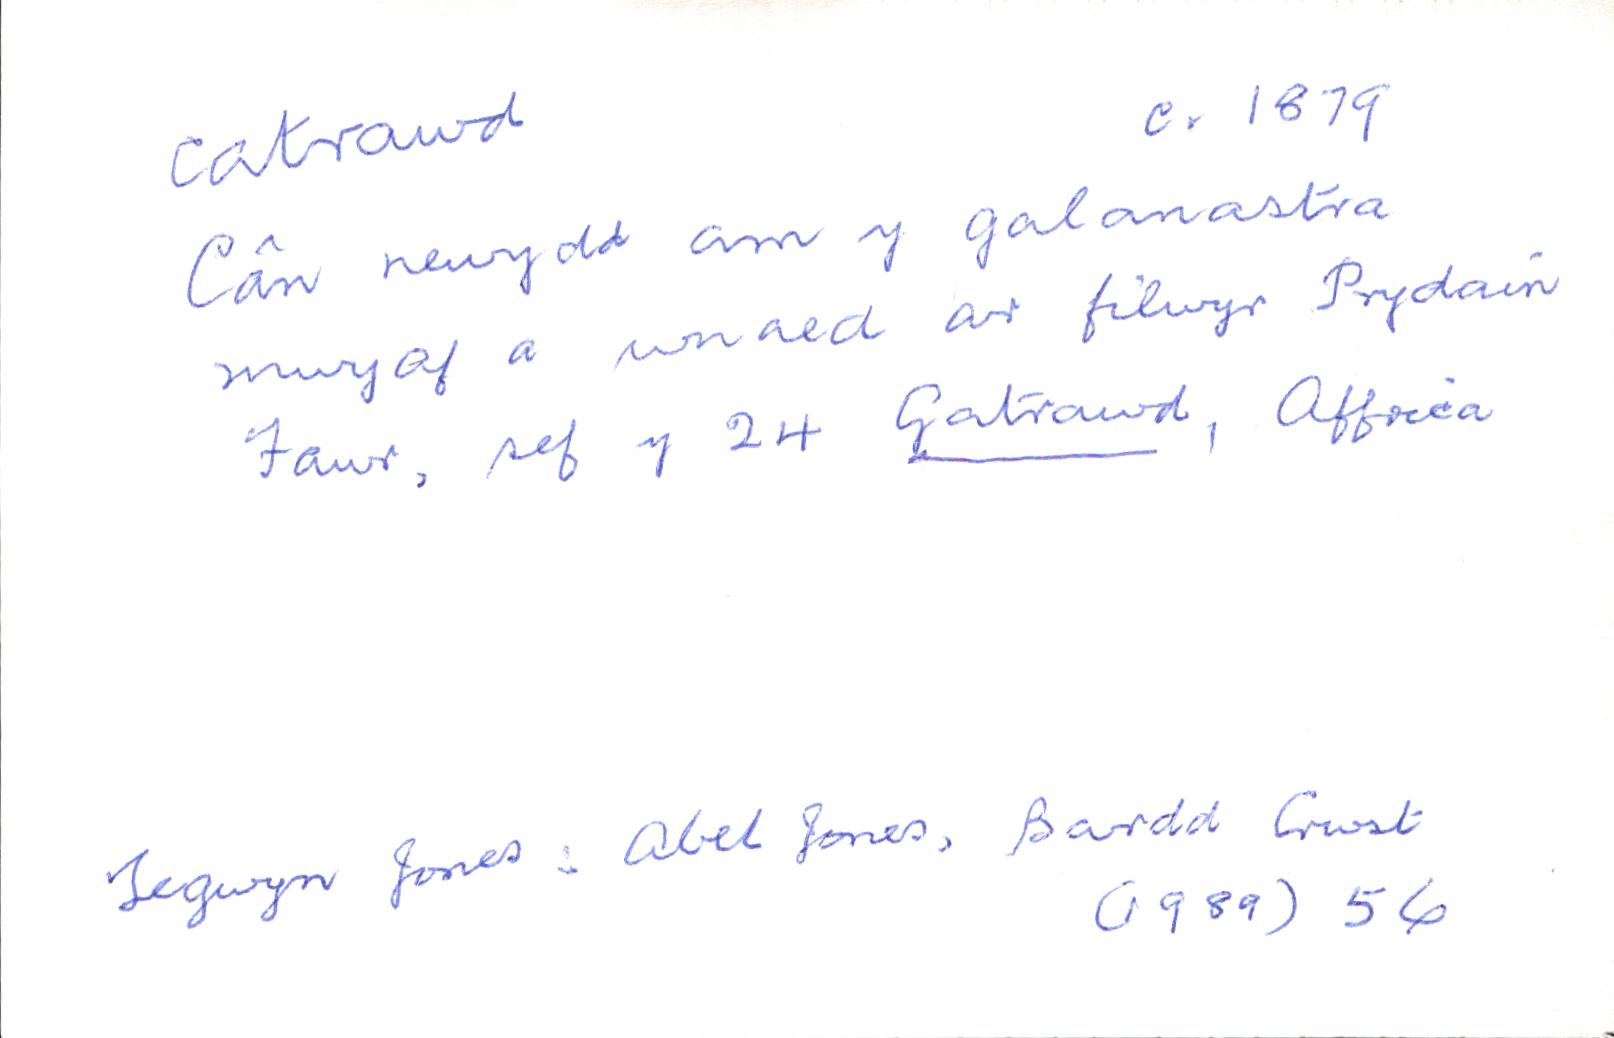 catrawd c. 1879
Cân newydd am y galanastra
mwyaf a wnaed ar filwyr Prydain
Fawr, sef y 24 Gatrawd, Affrica
Tegwyn Jones: Abel Jones, Bardd Crwst
(1989) 56